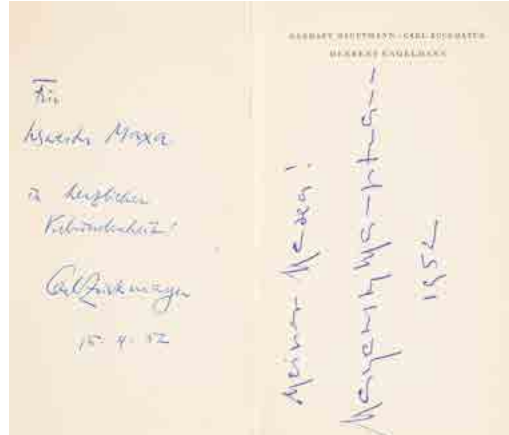 Für
Schwester Maxa
in herzlicher
Verbundenheit!
Carl Zuckmayer
15. 4. 52
GERHART HAUPTMANN · CARL ZUCKMAYER
HERBERT ENGELMANN
Meiner Maxa!
Margarete Hauptmann
1952